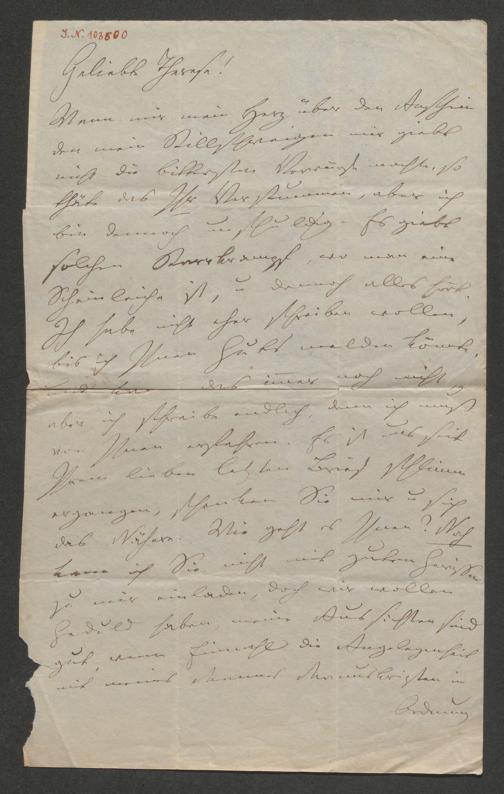 I. N. 103600
Geliebte Therese!
Wenn mir mein Herz über den Anschein
den mein Stillschweigen mir giebt
nicht die bittersten Vorwürfe machte, so
thäte das Ihr Verstummen, aber ich
bin dennoch unschuldig. Es giebt
solchen Starrkrampf, wo man eine
Scheinleiche ist, u dennoch alles hört.
Ich habe nicht eher schreiben wollen,
bis ich Ihnen Gutes melden könnte,
das immer noch nicht
aber ich schreibe endlich, denn ich muß
von Ihnen erfahren. Es ist uns seit
Ihrem lieben letzten Brief schlimm
ergangen, schenken Sie mir u sich
das Nähere. Wie geht es Ihnen? Noch
kann ich Sie nicht mit gutem Gewissen
zu mir einladen, doch wir wollen
Geduld haben, meine Aussichten sind
gut, wenn Einmahl die Angelegenheit
mit meines Mannes Manuskripten in
Ordnung